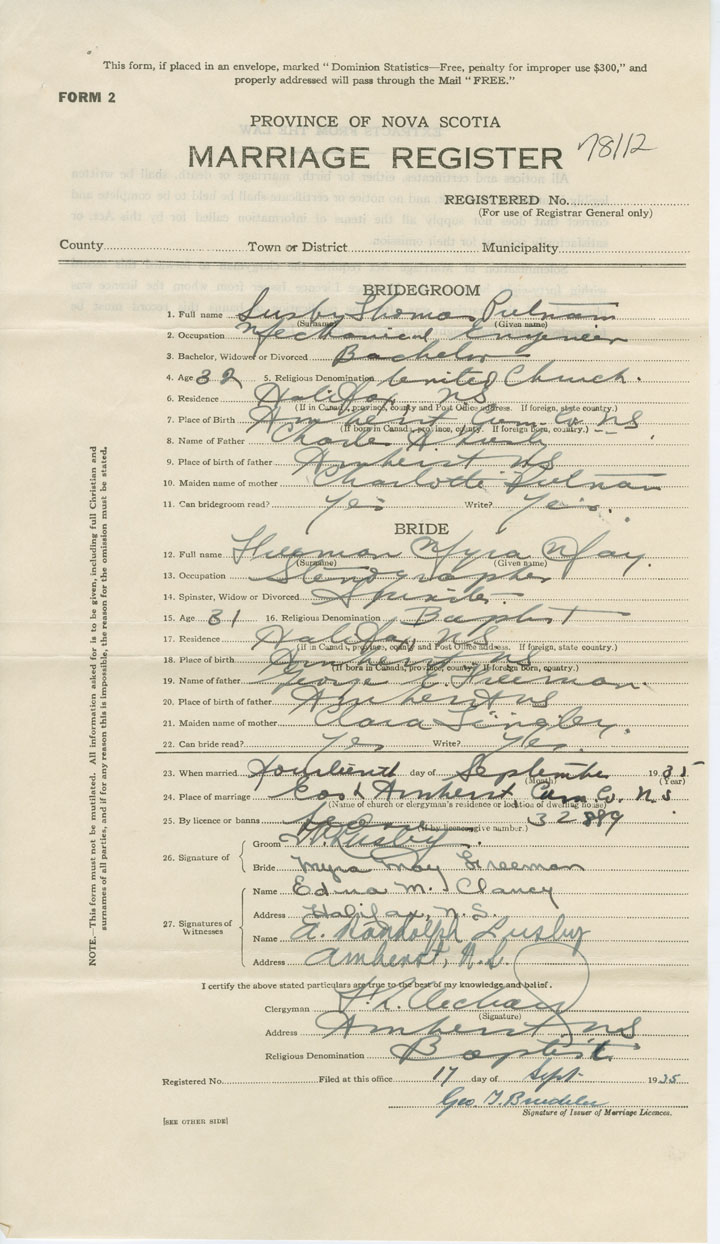 This form, if placed in an envelope, marked "Dominion Statistics—Free, penalty for improper use $300," and
properly addressed will pass through the Mail "FREE."
FORM 2
PROVINCE OF NOVA SCOTIA
MARRIAGE REGISTER 78112
REGISTERED No.
(For use of Registrar General only)
County Town or District Municipality
BRIDEGROOM
1. Full name Lusby Thomas Putnam
(Surname) (Given name)
2. Occupation Mechanical Engineer
3. Bachelor, Widower or Divorced Bachelor
4. Age 32 5. Religious Denomination United Church.
6. Residence Halifax NS
(If in Canada, province, county and Post Office address. If foreign, state country.)
7. Place of Birth Amherst Cum. Co. NS
(If born in Canada, province, county. If foreign born, country.)
8. Name of Father Charles Lusby
9. Place of birth of father Amherst NS
10. Maiden name of mother Charlotte Putnam
11. Can bridegroom read? Yes Write? Yes.
BRIDE
12. Full name Freeman Myra May.
(Surname) (Given name)
13. Occupation Stenographer
14. Spinster, Widow or Divorced Spinster.
15. Age 31 16. Religious Denomination Baptist
17. Residence Halifax NS
(If in Canada, province, county and Post Office address. If foreign, state country.)
18. Place of birth Amherst NS
(If born in Canada, province, county. If foreign born, country.)
19. Name of father George Freeman.
20. Place of birth of father Amherst NS
21. Maiden name of mother Clara Lingley.
22. Can bride read? Yes Write? Yes.
23. When married Fourteenth day of September 1935
(Month) (Year)
24. Place of marriage East Amherst Cum. Co. N.S
(Name of church or clergyman's residence or location of dwelling house)
25. By licence or banns License 32889
(If by licence, give number.)
26. Signature of
Groom Lusby.
Bride Myra May Freeman
27. Signatures of Witnesses
Name Edna M. Clancy
Address Halifax, N.S.
Name A. Randolph Lusby
Address Amherst, N.S.
I certify the above stated particulars are true to the best of my knowledge and belief.
Clergyman
(Signature)
Address Amherst NS
Religious Denomination Baptist
Registered No. Filed at this office 17 day of Sept. 1935
Geo. T.
Signature of Issuer of Marriage Licences.
[SEE OTHER SIDE]
NOTE.—This form must not be mutilated. All information asked for is to be given, including full Christian and
surnames of all parties, and if for any reason this is impossible, the reason for the omission must be stated.